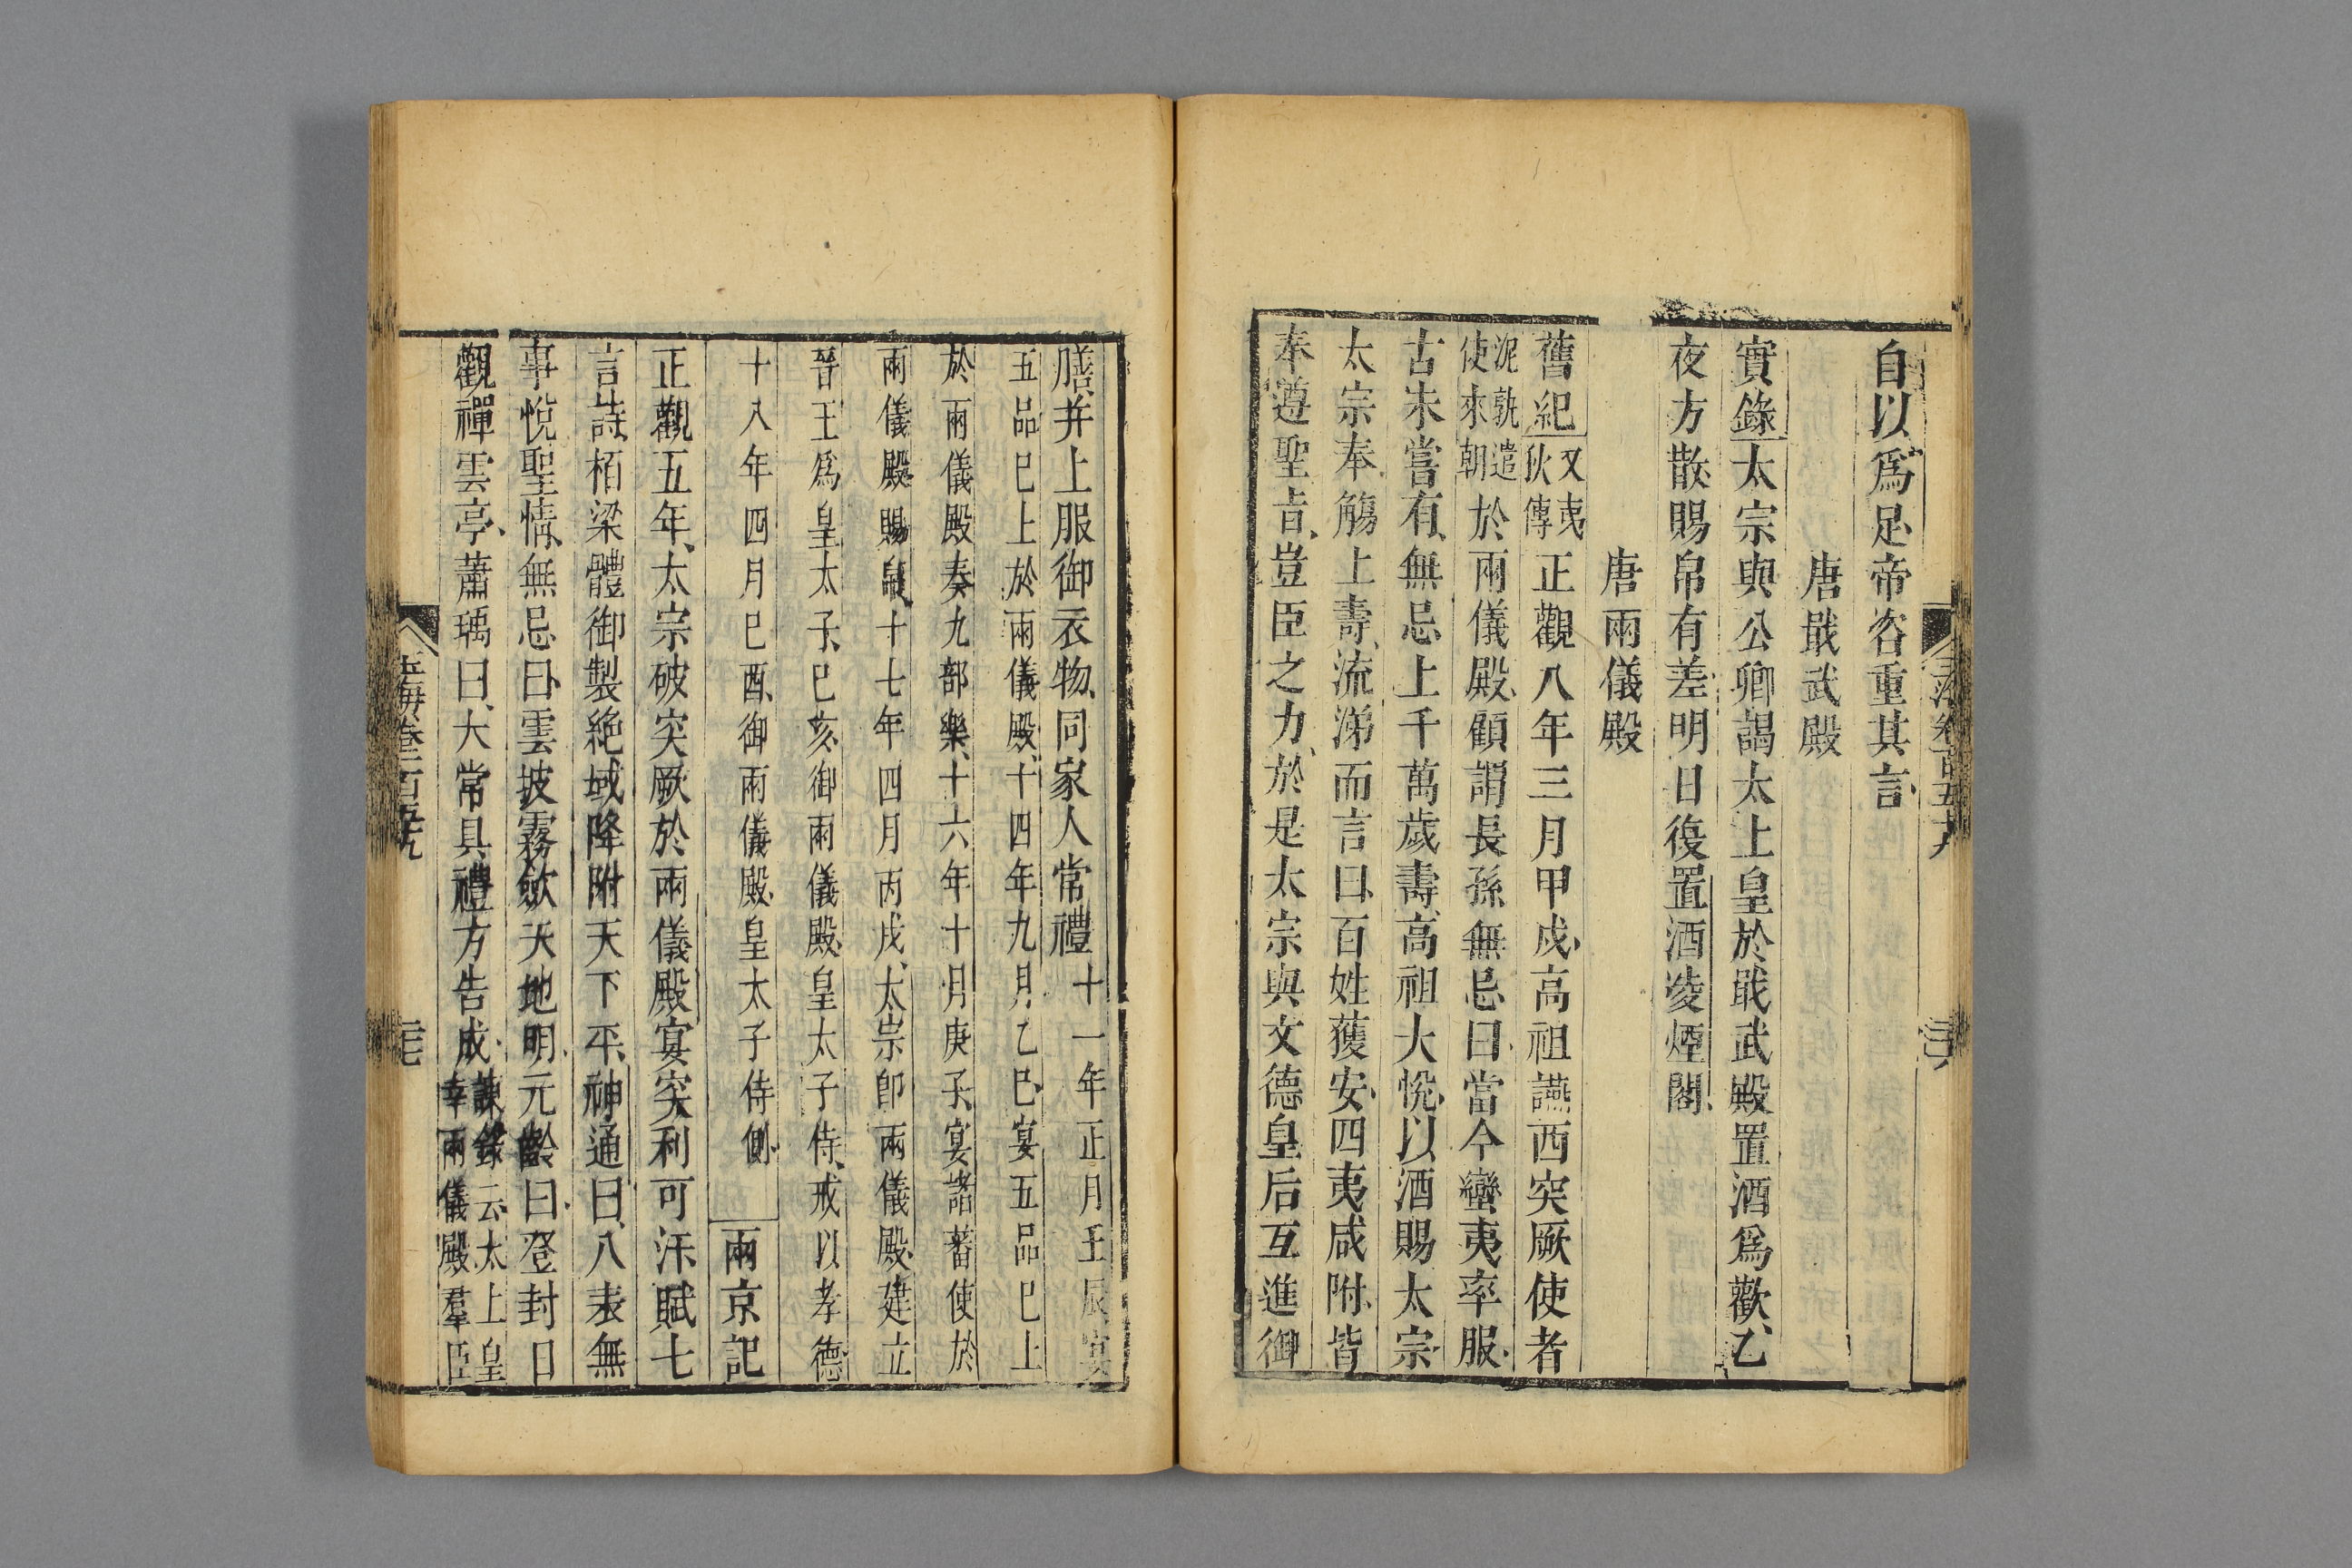 自以爲足帝咨重其言
唐戢武殿
實錄太宗與公卿謁太上皇於戢武殿置酒爲歡乙
夜方散賜帛有差明日復置酒凌煙閣
唐兩儀殿
舊紀又夷狄傳正觀八年三月甲戌高祖讌西突厥使者
泥孰遣使來朝於兩儀殿顧謂長孫無忌曰當今蠻夷率服
古未嘗有無忌上千萬歲壽高祖大悅以酒賜太宗
太宗奉觴上壽流涕而言曰百姓獲安四夷咸附皆
奉遵聖旨豈臣之力於是太宗與文德皇后互進御
膳并上服御衣物同家人常禮十一年正月壬辰宴
五品巳上於兩儀殿十四年九月乙巳宴五品巳上
於兩儀殿奏九部樂十六年十月庚子宴諸蕃使於
兩儀殿賜帛十七年四月丙戌太宗御兩儀殿建立
晉王爲皇太子巳亥御兩儀殿皇太子侍戒以孝德
十八年四月巳酉御兩儀殿皇太子侍側 兩京記
正觀五年太宗破突厥於兩儀殿宴突利可汗賦七
言詩栢梁體御製絶域降附天下平神通曰八表無
事悅聖情無忌曰雲披霧歛天地明元齡曰登封日
觀禪雲亭蕭瑀曰大常具禮方告成諫錄云太上皇幸兩儀殿羣臣
玉海卷一百五十九
三七